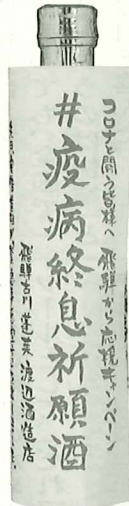 コロナと闘う皆様へ 飛騨から応援キャンペーン
#疫病終息祈願酒
飛騨古川 蓬莱 渡辺酒造店